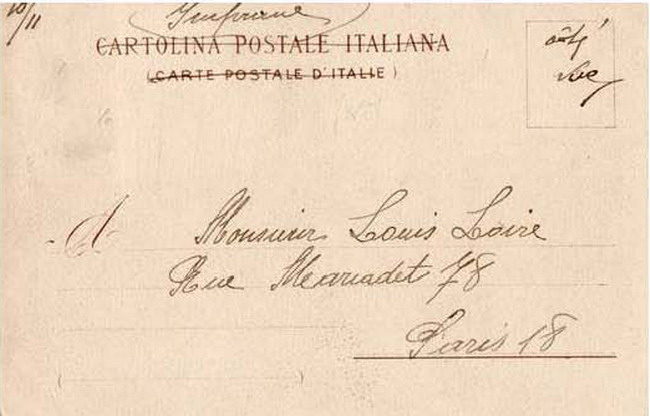 10/11
Imprimé
CARTOLINA POSTALE ITALIANA
(CARTE POSTALE D'ITALIE)
côté
vue
A
Monsieur Louis Loire
Rue Marcadet 78
Paris 18